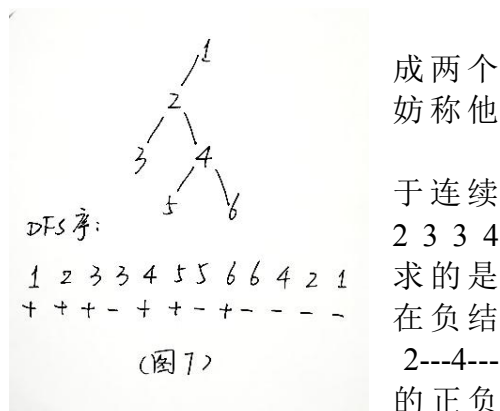 1
2
3 4
5 6
DFS序:
1 2 3 3 4 5 5 6 6 4 2 1
+ + + - + + - + - - - -
(图7)
成两个
妨称他
于连续
2 3 3 4
求的是
在负结
2---4---
的正负